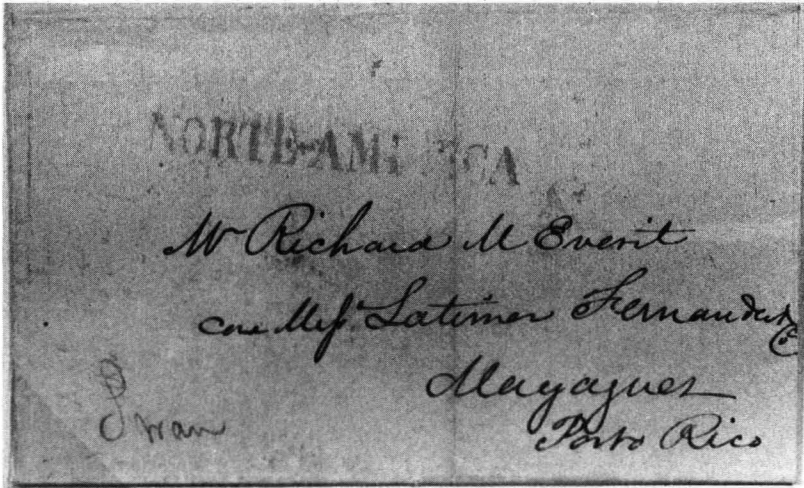 NORTE-AMERICA
Mr Richard M Everit
care Messrs Latimer Fernandez & Co
Mayaguez
Porto Rico
Swan